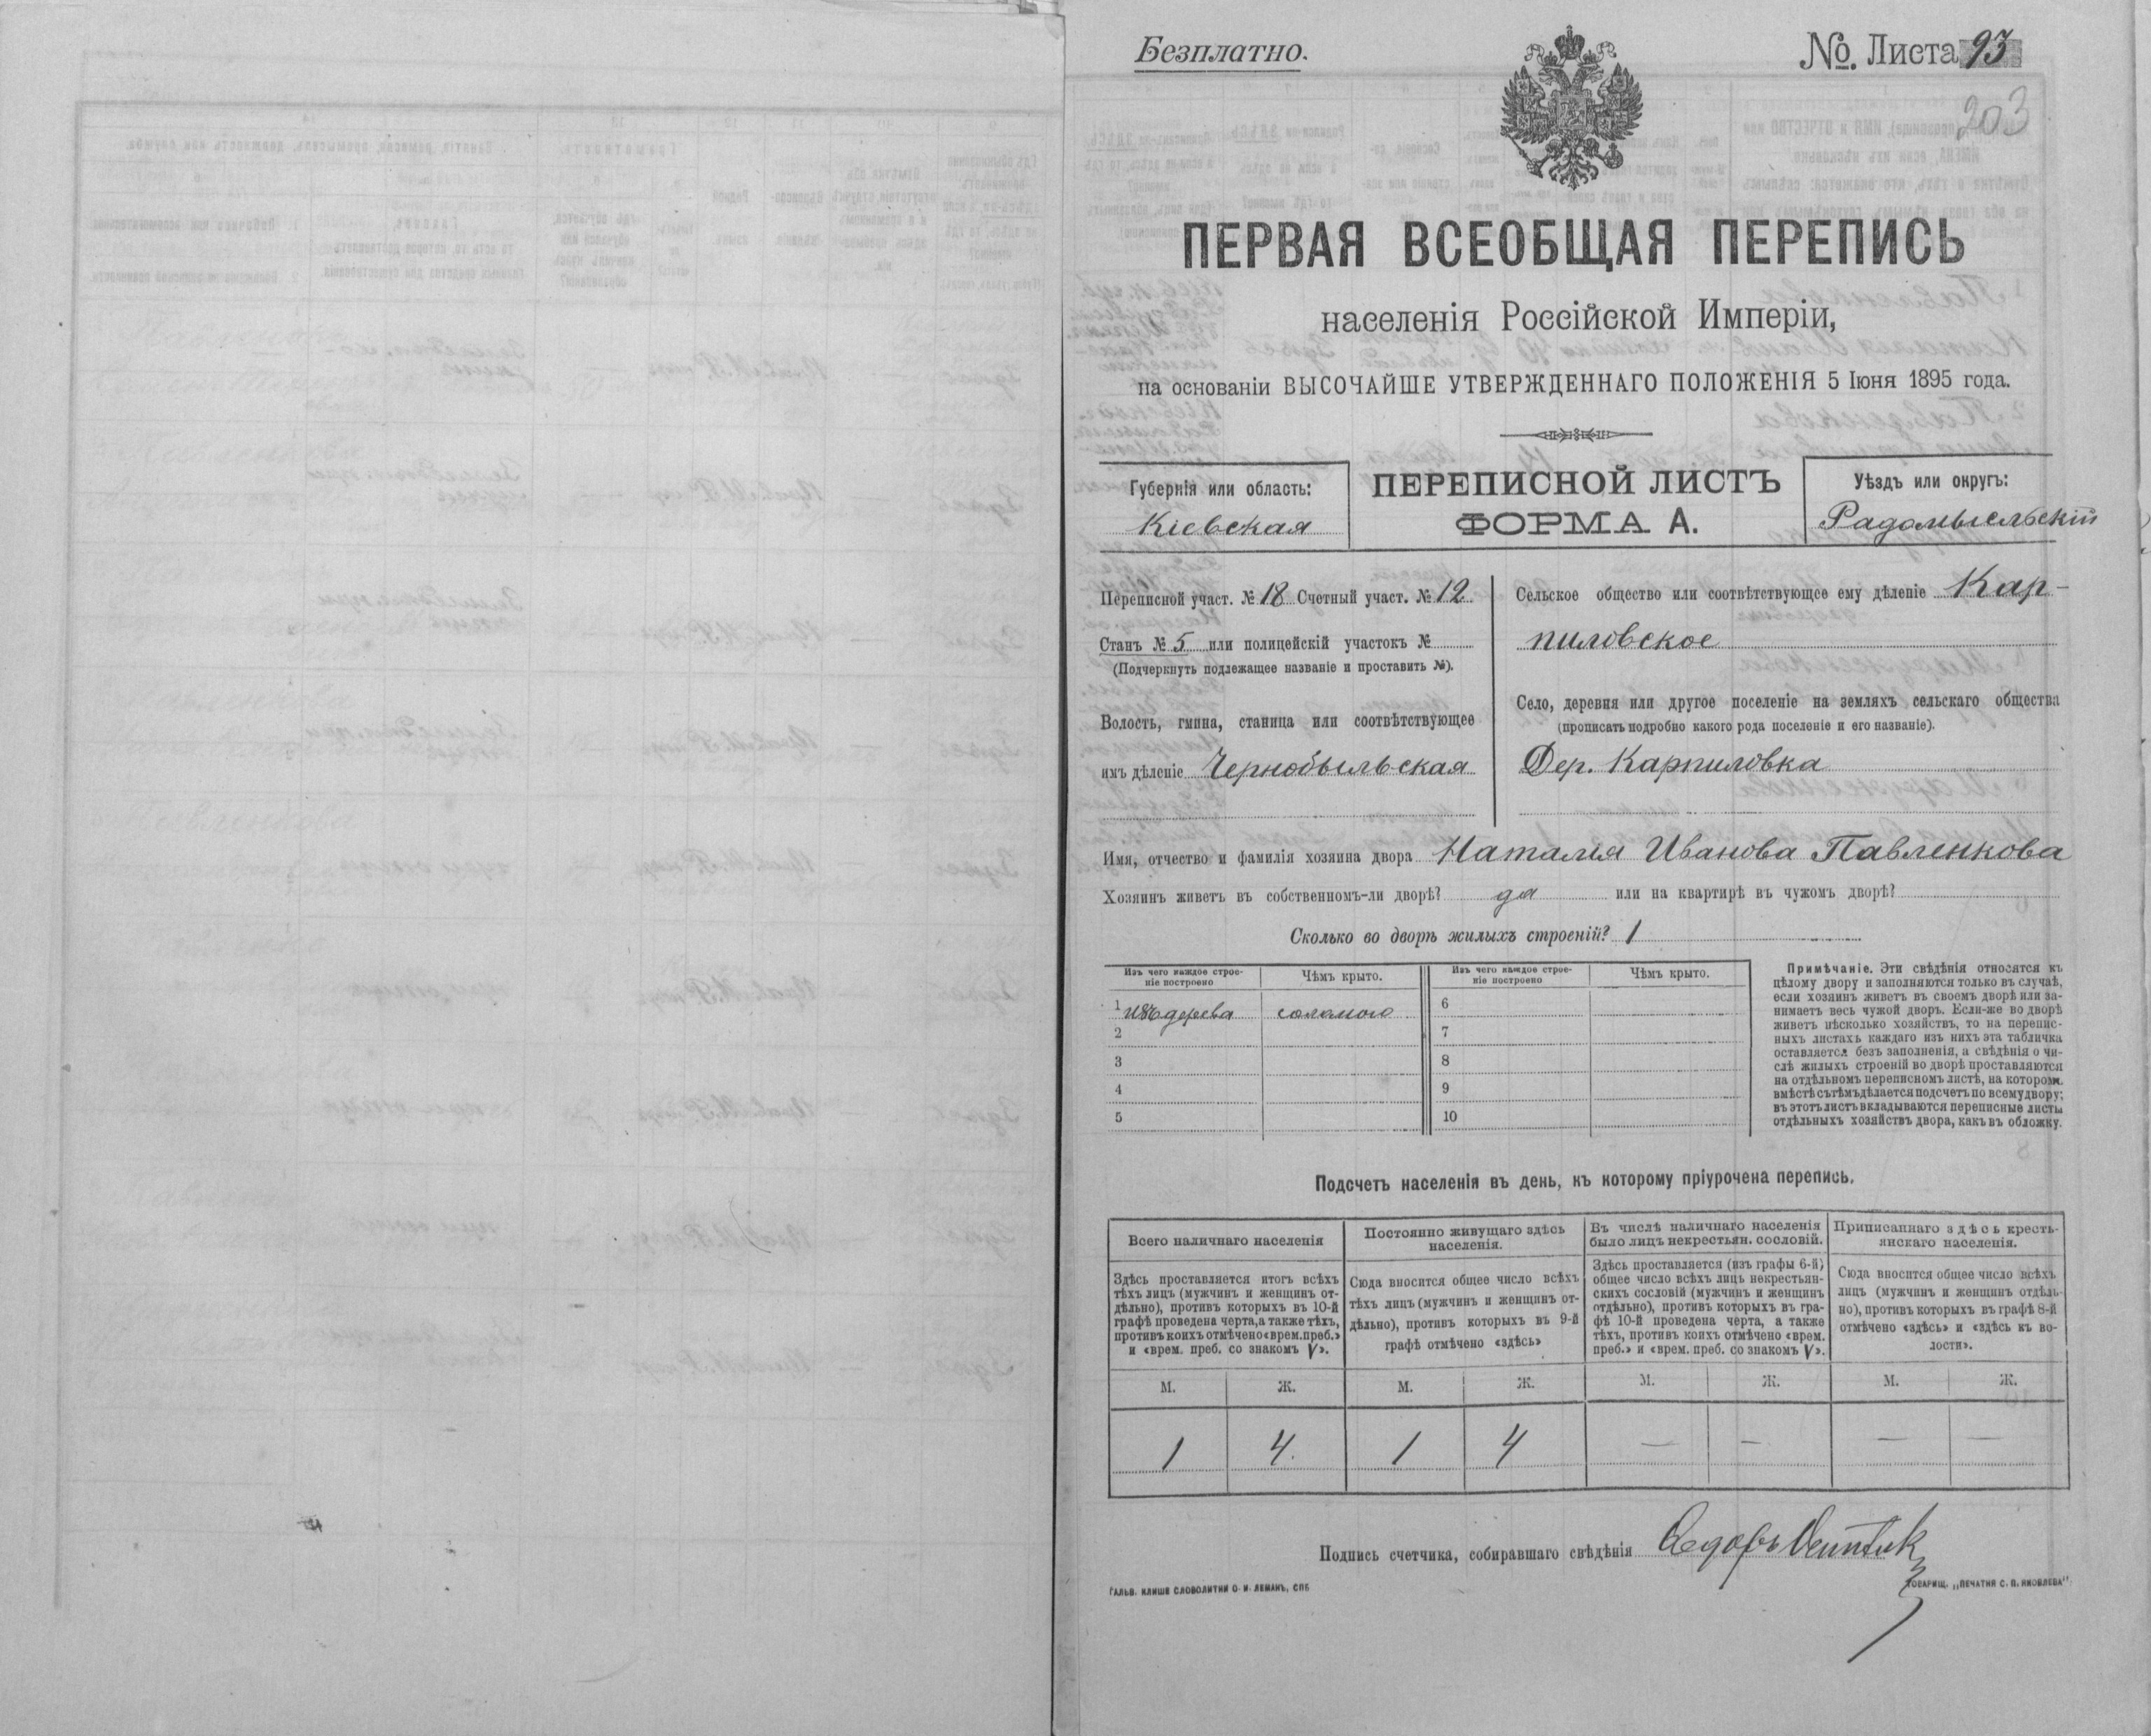 Безплатно.
№. Листа 93
203
ПЕРВАЯ ВСЕОБЩАЯ ПЕРЕПИСЬ
населенія Россійской Имперіи,
на основаніи ВЫСОЧАЙШЕ УТВЕРЖДЕННАГО ПОЛОЖЕНІЯ 5 Іюня 1895 года.
Губернія или область:
Кіевская
ПЕРЕПИСНОЙ ЛИСТЪ
ФОРМА А.
Уѣздъ или округъ:
Радомысльскій
Переписной участ. № 18 Счетный участ. № 12
Станъ № 5 или полицейскій участокъ №
(Подчеркнуть подлежащее названіе и проставить №).
Волость, гмина, станица или соотвѣтствующее
имъ дѣленіе Чернобыльская
Сельское общество или соотвѣтствующее ему дѣленіе Кар-
пиловское
Село, деревня или другое поселеніе на земляхъ сельскаго общества
(прописать подробно какого рода поселеніе и его названіе).
Дер. Карпиловка
Имя, отчество и фамилія хозяина двора Наталия Иванова Павленкова
Хозяинъ живетъ въ собственномъ-ли дворѣ? да или на квартирѣ въ чужомъ дворѣ?
Сколько во дворѣ жилыхъ строеній? 1
Изъ чего каждое строе-
ніе построено
Чѣмъ крыто.
Изъ чего каждое строе-
ніе построено
Чѣмъ крыто.
1 изъ дерева соломою 6
2 7
3 8
4 9
5 10
Примѣчаніе. Эти свѣдѣнія относятся къ
цѣлому двору и заполняются только въ случаѣ,
если хозяинъ живетъ въ своемъ дворѣ или за-
нимаетъ весь чужой дворъ. Если-же во дворѣ
живетъ нѣсколько хозяйствъ, то на перепис-
ныхъ листахъ каждаго изъ нихъ эта табличка
оставляется безъ заполненія, а свѣдѣнія о чи-
слѣ жилыхъ строеній во дворѣ проставляются
на отдѣльномъ переписномъ листѣ, на которомъ
вмѣстѣ съ тѣмъ дѣлается подсчетъ по всему двору;
въ этотъ листъ вкладываются переписные листы
отдѣльныхъ хозяйствъ двора, какъ въ обложку.
Подсчетъ населенія въ день, къ которому пріурочена перепись.
Всего наличнаго населенія
Постоянно живущаго здѣсь
населенія.
Въ числѣ наличнаго населенія
было лицъ некрестьян. сословій.
Приписаннаго здѣсь кресть-
янскаго населенія.
Здѣсь проставляется итогъ всѣхъ
тѣхъ лицъ (мужчинъ и женщинъ от-
дѣльно), противъ которыхъ въ 10-й
графѣ проведена черта, а также тѣхъ,
противъ коихъ отмѣчено «врем. преб.»
и «врем. преб. со знакомъ V».
Сюда вносится общее число всѣхъ
тѣхъ лицъ (мужчинъ и женщинъ от-
дѣльно), противъ которыхъ въ 9-й
графѣ отмѣчено «здѣсь»
Здѣсь проставляется (изъ графы 6-й)
общее число всѣхъ лицъ некрестьян-
скихъ сословій (мужчинъ и женщинъ
отдѣльно), противъ которыхъ въ гра-
фѣ 10-й проведена черта, а также
тѣхъ, противъ коихъ отмѣчено «врем.
преб.» и «врем. преб. со знакомъ V».
Сюда вносится общее число всѣхъ
лицъ (мужчинъ и женщинъ отдѣль-
но), противъ которыхъ въ графѣ 8-й
отмѣчено «здѣсь» и «здѣсь къ во-
лости».
М. Ж. М. Ж. М. Ж. М. Ж.
1 4. 1 4 — — — —
Подпись счетчика, собиравшаго свѣдѣнія
ГАЛЬВ. КЛИШЕ СЛОВОЛИТНИ О. И. ЛЕМАНЪ, СПБ.
ТОВАРИЩ. „ПЕЧАТНЯ С. П. ЯКОВЛЕВА“